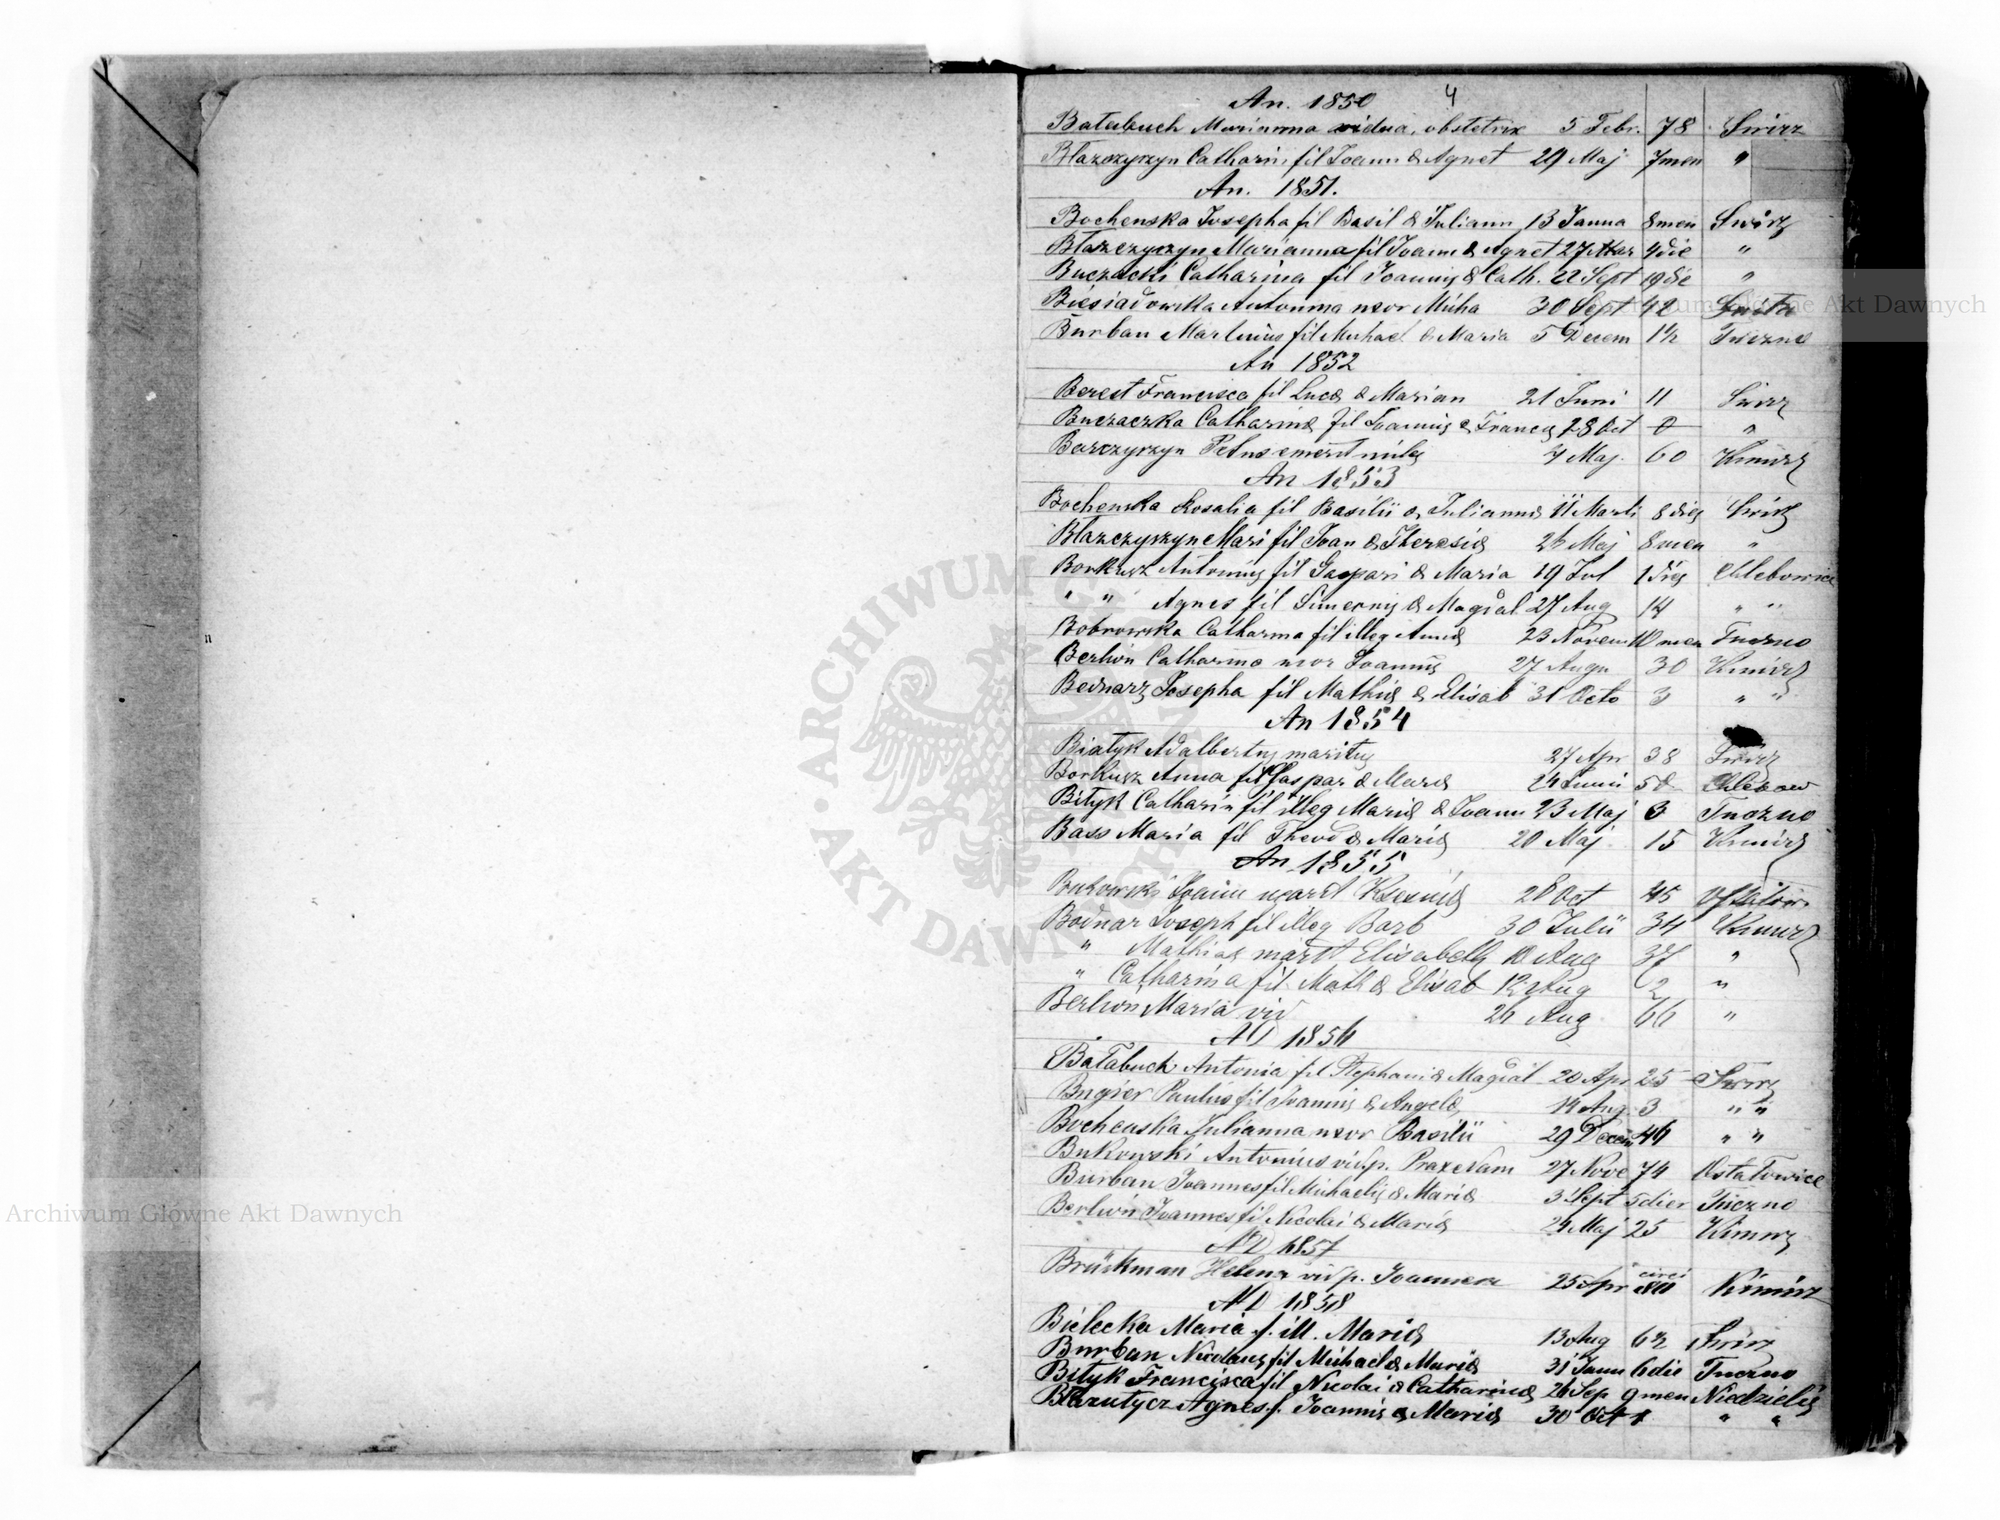 An. 1850 4
Batabuch Marianna vidua, obstetrix 5 Febr. 78 Swirz
Błazczyszyn Catharin. fil Joann & Agnet 29 Maj 7 men "
An. 1851.
Bochenska Josepha fil Basil & Juliann 13 Janua 8 men Swirz
Błazczyszyn Marianna fil Joann & Agnet 27 Mar 4 die "
Buczacki Catharina fil Joannis & Cath. 22 Sept 19 die "
Biesiadowska Antonina uxor Micha 30 Sept 42
Burban Martinus fil Michael & Maria 5 Decem 1½ Tuczne
An 1852
Berest Francisca fil Luca & Marian 21 Juni 11 Swirz
Buczaczka Catharina fil Joannis & Francis 28 Oct 0 "
Barczyszyn Petrus emerit miles 7 Maj. 60 Kimirz
An 1853
Bochenska Rosalia fil Basilii & Julianna 11 Marti 8 dies Swirz
Błazczyszyn Mari fil Joan & Theresia 26 Maj 8 men "
Borkusz Antonius fil Gaspari & Maria 19 Jul 1 dies Chlebowice
" " Agnes fil Simeonis & Magdal 27 Aug 14 " "
Bobrowska Catharina fil illeg Anna 23 Novem 10 men Tuczno
Berliön Catharina uxor Joannis 27 Augu 30 Kimirz
Bednarz Josepha fil Mathia & Elisab 31 Octo 3 " "
An 1854
Białyk Adalbertus maritus 27 Apr 38 Swirz
Borkusz Anna fil Gaspar & Maria 24 Juni 5 d Chlebow
Bityk Catharin fil illeg Maria & Joann 23 Maj 3 Tuczno
Bass Maria fil Theod & Maria 20 Maj 15 Kimirz
An 1855
Bukowski Joann 28 Oct 45
Bodnar Joseph fil illeg Barb 30 Julii 34 Kimirz
" Mathias marit Elisabeth 10 Aug 37 "
" Catharina fil. Math & Elisab 12 Aug 2 "
Berliön Maria vid 26 Aug 66 "
AD 1856
Bałabuch Antonia fil Stephani & Magdal 20 Apr 25 Swirz
Bugier Paulus fil Joannis & Angela 14 Aug 3 " "
Bochenska Julianna uxor Basilii 29 Decem 46 " "
Bukowski Antonius vid p. Praxedam 27 Nove 74 Ostałowice
Burban Joannes fil Michaelis & Maria 3 Sept 5 dier Tuczno
Berliön Joannes fil Nicolai & Maria 24 Maj 25 Kimirz
AD 1857
Brückman Helena vid p. Joannem 25 Apr circi 80 Kimirz
AD 1858
Bielecka Maria f. ill. Maria 13 Aug 6½ Swirz
Burban Nicolaus fil Michael & Maria 31 Janu 6 die Tuczno
Bityk Francisca fil Nicolai & Catharina 26 Sep 9 men Niedzielis
Błazutycz Agnes f. Joannis & Maria 30 Oct 1 " "
ARCHIWUM GŁÓWNE AKT DAWNYCH
Archiwum Główne Akt Dawnych
Archiwum Główne Akt Dawnych